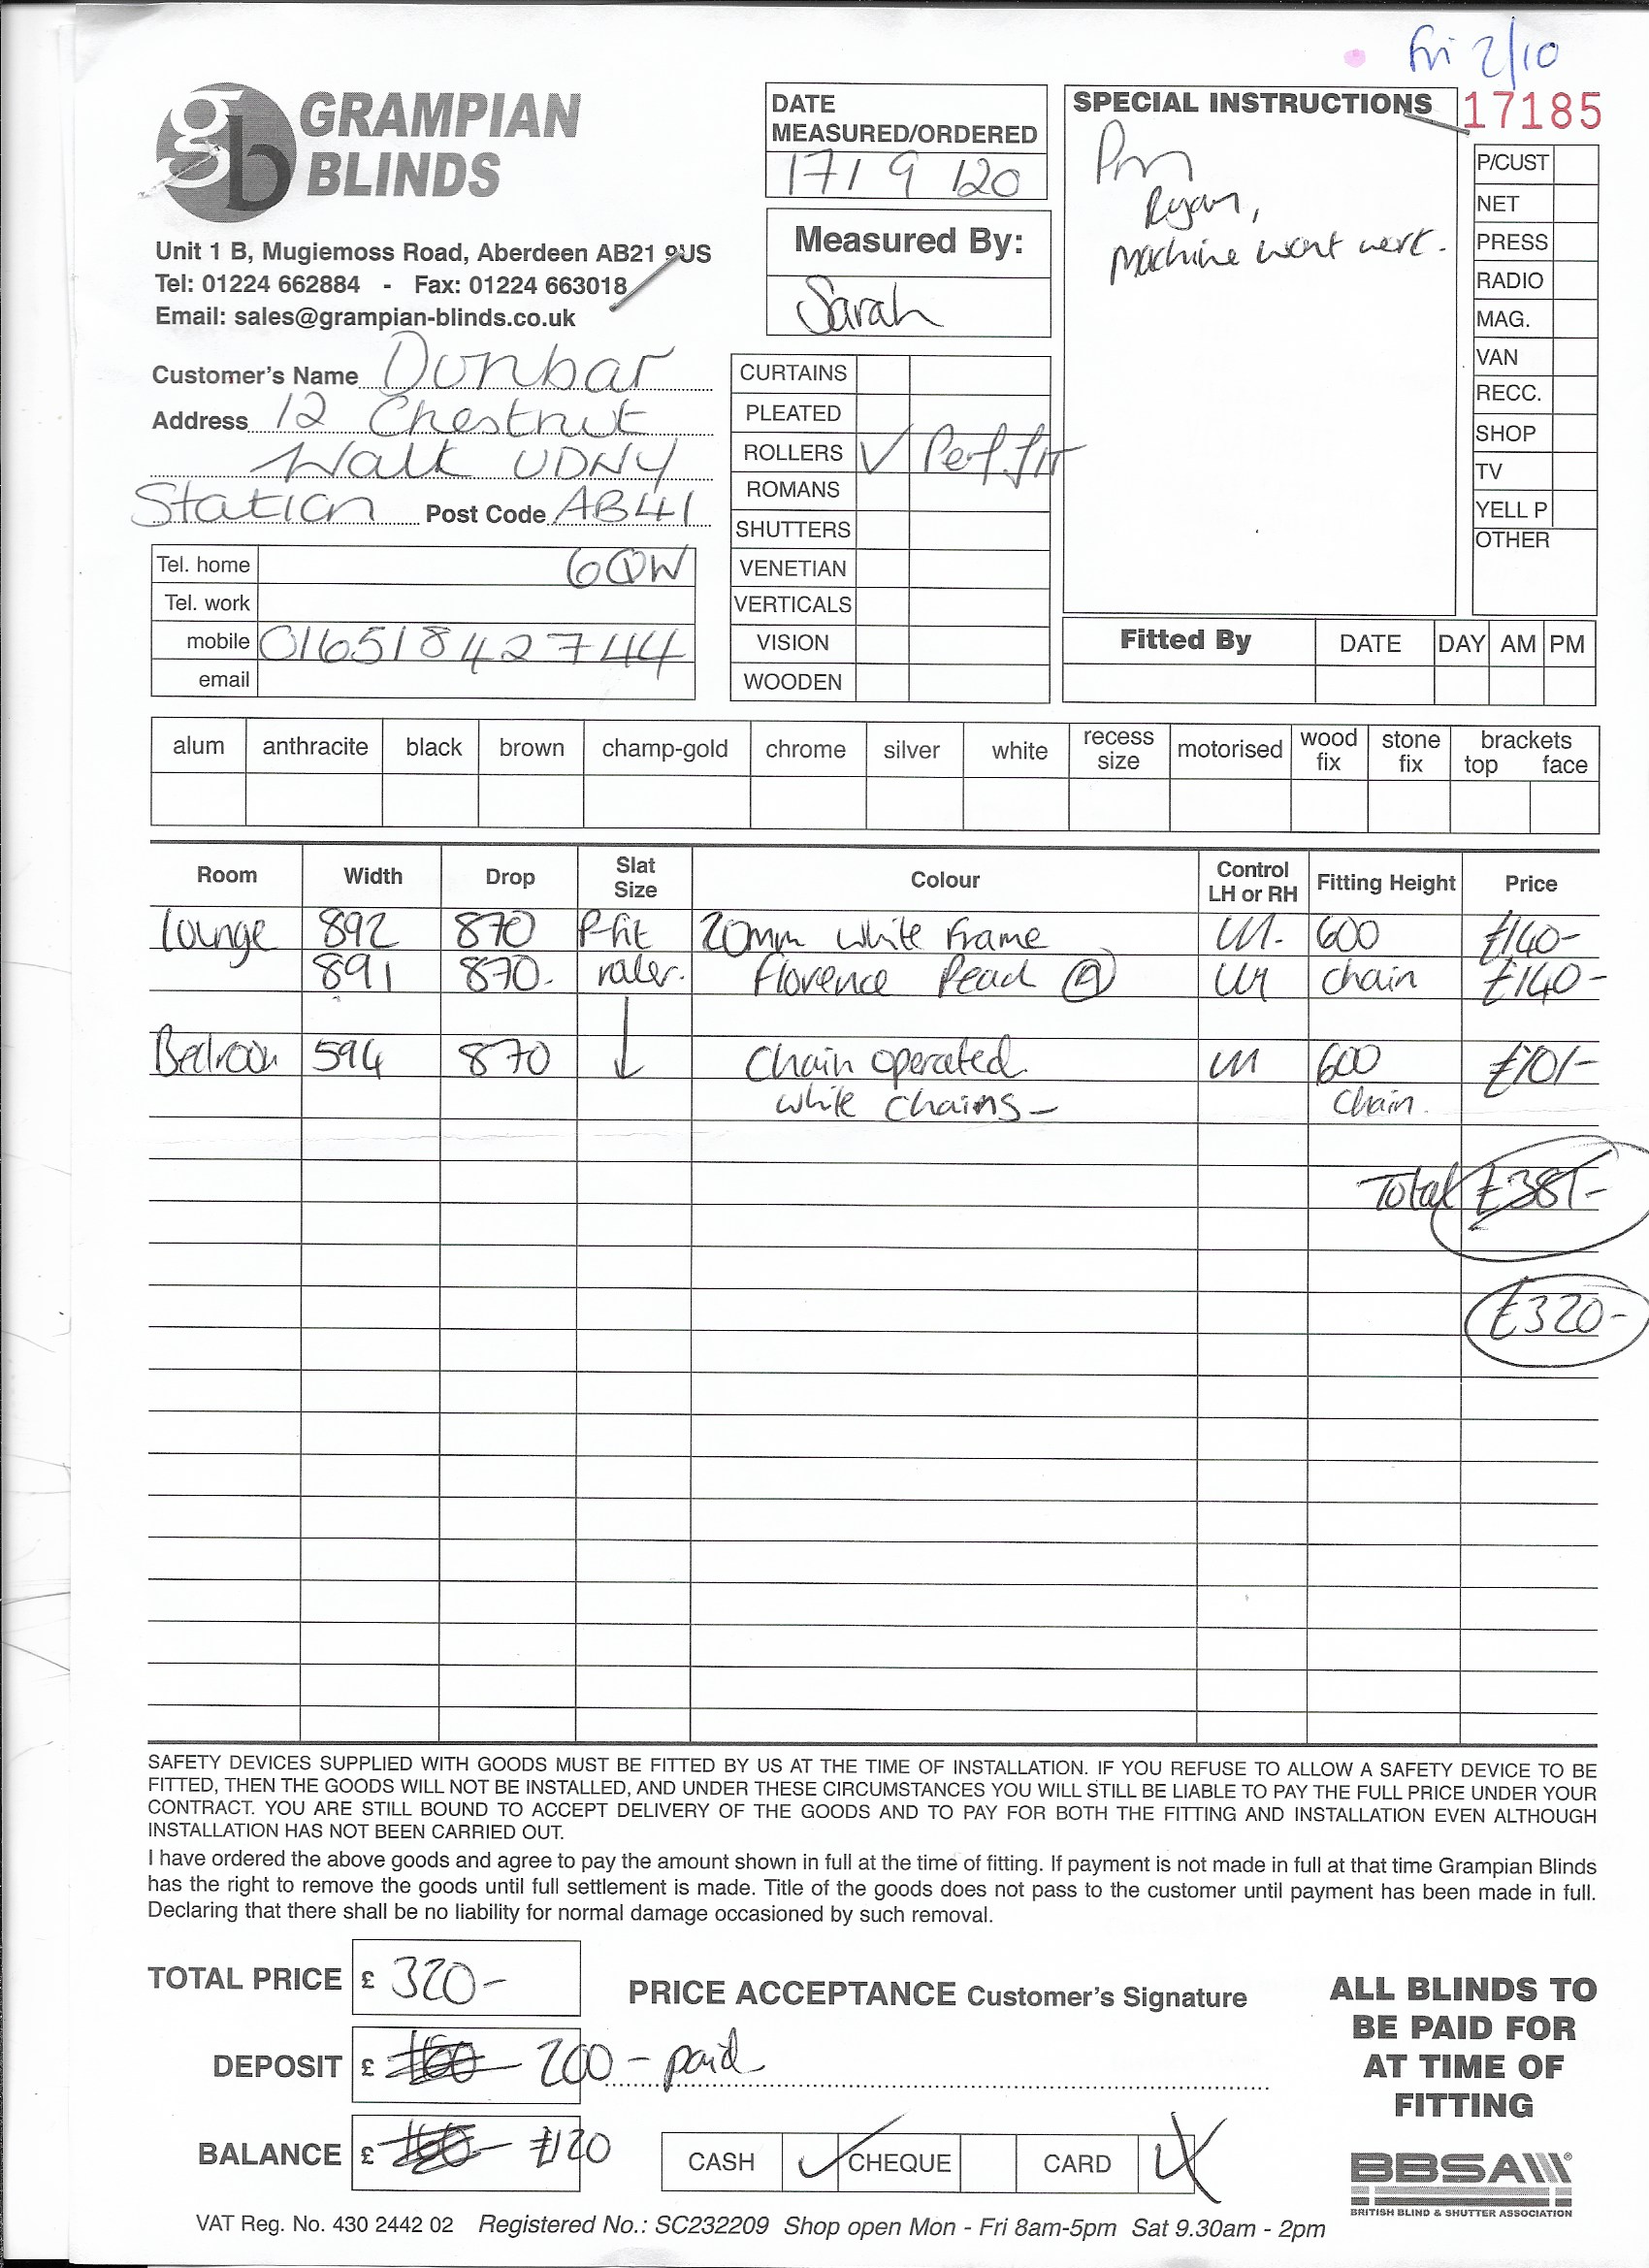 Fri 2/10
GRAMPIAN
BLINDS
Unit 1 B, Mugiemoss Road, Aberdeen AB21 9US
Tel: 01224 662884 - Fax: 01224 663018
Email: sales@grampian-blinds.co.uk
DATE
MEASURED/ORDERED
17/9/20
Measured By:
Sarah
SPECIAL INSTRUCTIONS
Pm
Ryan,
Machine wont work.
17185
P/CUST
NET
PRESS
RADIO
MAG.
VAN
RECC.
SHOP
TV
YELL P
OTHER
Customer's Name Dunbar
Address 12 Chestnut
Walk UDNY
Station Post Code AB41
6QW
Tel. home
Tel. work
mobile 01651842744
email
CURTAINS
PLEATED
ROLLERS ✓ Perf fit
ROMANS
SHUTTERS
VENETIAN
VERTICALS
VISION
WOODEN
Fitted By DATE DAY AM PM
alum anthracite black brown champ-gold chrome silver white recess size motorised wood fix stone fix brackets top face
Room Width Drop Slat Size Colour Control LH or RH Fitting Height Price
Lounge 892 870 P-fit 20mm white frame 600 £140-
891 870. roller. Florence Pearl A chain £140-
Bedroom 594 870 Chain operated 600 £101-
white chains - Chain.
Total £381-
£320-
SAFETY DEVICES SUPPLIED WITH GOODS MUST BE FITTED BY US AT THE TIME OF INSTALLATION. IF YOU REFUSE TO ALLOW A SAFETY DEVICE TO BE
FITTED, THEN THE GOODS WILL NOT BE INSTALLED, AND UNDER THESE CIRCUMSTANCES YOU WILL STILL BE LIABLE TO PAY THE FULL PRICE UNDER YOUR
CONTRACT. YOU ARE STILL BOUND TO ACCEPT DELIVERY OF THE GOODS AND TO PAY FOR BOTH THE FITTING AND INSTALLATION EVEN ALTHOUGH
INSTALLATION HAS NOT BEEN CARRIED OUT.
I have ordered the above goods and agree to pay the amount shown in full at the time of fitting. If payment is not made in full at that time Grampian Blinds
has the right to remove the goods until full settlement is made. Title of the goods does not pass to the customer until payment has been made in full.
Declaring that there shall be no liability for normal damage occasioned by such removal.
TOTAL PRICE £ 320-
PRICE ACCEPTANCE Customer's Signature
DEPOSIT £ 160 200 - paid
BALANCE £ 160 £120
CASH ✓ CHEQUE CARD
ALL BLINDS TO
BE PAID FOR
AT TIME OF
FITTING
BBSA
BRITISH BLIND & SHUTTER ASSOCIATION
VAT Reg. No. 430 2442 02 Registered No.: SC232209 Shop open Mon - Fri 8am-5pm Sat 9.30am - 2pm